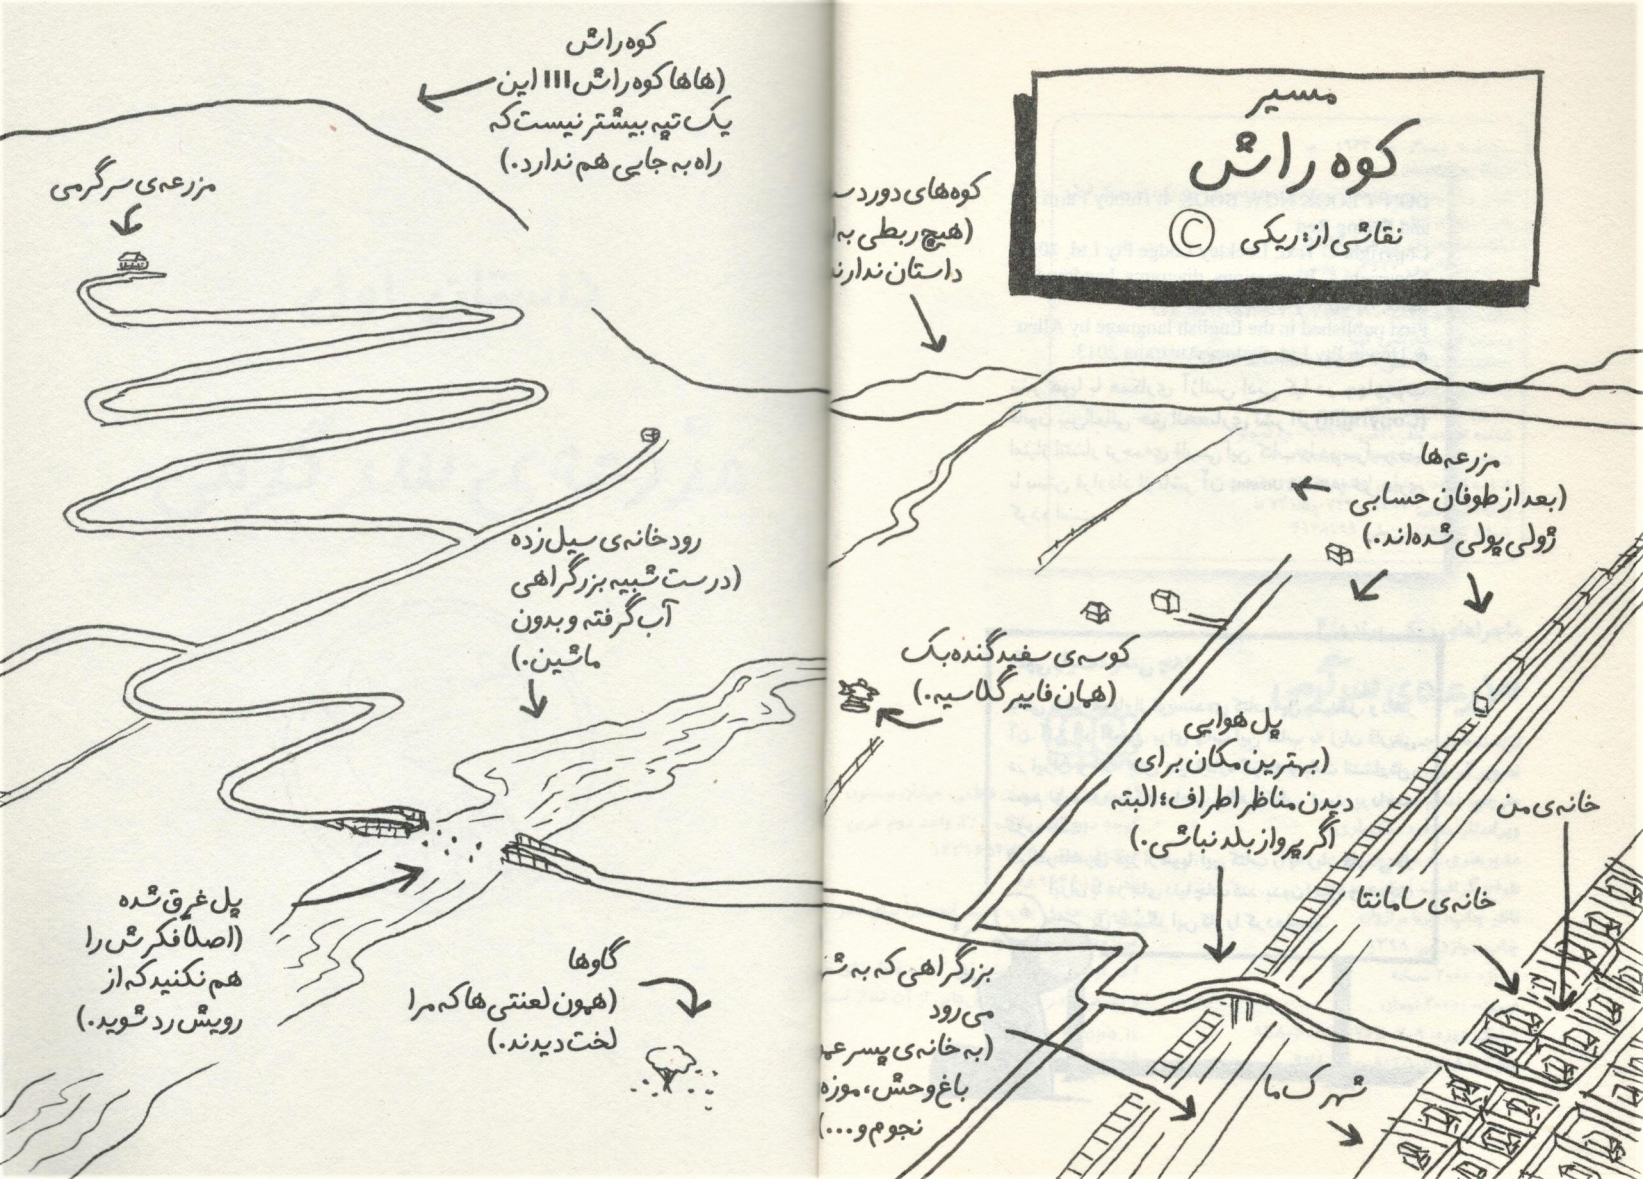 مسیر
کوه راش
نقاشی از: ریکی ©
کوه راش
(هاها کوه راش!!! این
یک تپه بیشتر نیست که
راه به جایی هم ندارد.)
مزرعه‌ی سرگرمی
کوه‌های دوردس
(هیچ ربطی به
داستان ندارند
مزرعه‌ها
(بعد از طوفان حسابی
ژولی پولی شده‌اند.)
رودخانه‌ی سیل‌زده
(درست شبیه بزرگراهی
آب گرفته و بدون
ماشین.)
کوسه‌ی سفید گنده‌بک
(همان فایبر گلاسیه.)
پل هوایی
(بهترین مکان برای
دیدن مناظر اطراف؛ البته
اگر پرواز بلد نباشی.)
خانه‌ی من
خانه‌ی سامانتا
پل غرق شده
(اصلاً فکرش را
هم نکنید که از
رویش رد شوید.)
گاوها
(همون لعنتی‌ها که مرا
لخت دیدند.)
بزرگراهی که به ش
می‌رود
(به خانه‌ی پسرعم
باغ وحش، موزه
نجوم و...)
شهرک ما